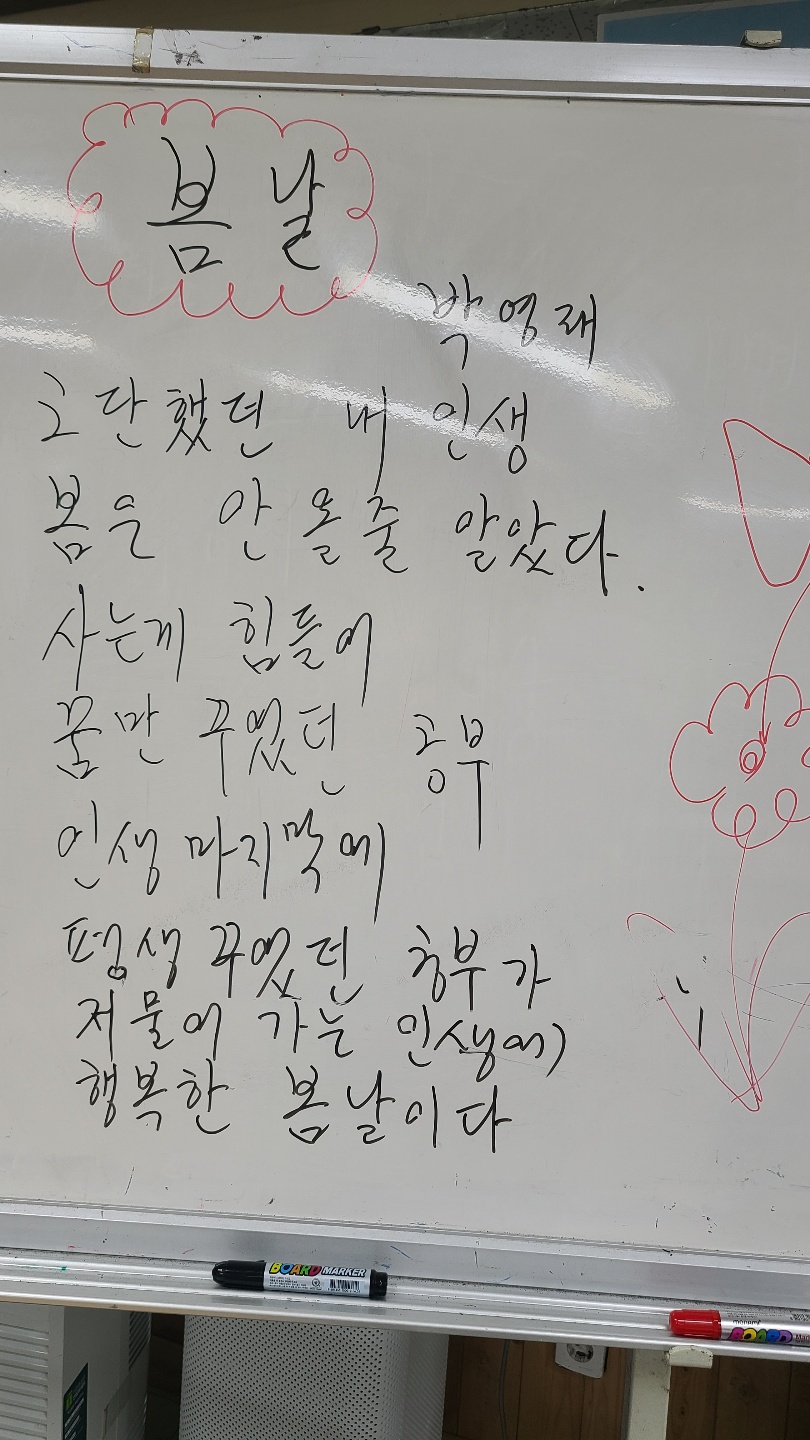 봄 날
박영재
고단했던 내 인생
봄은 안 올줄 알았다.
사는게 힘들어
꿈만 꾸었던 공부
인생 마지막에
평생 꾸었던 공부가
저물어 가는 인생에
행복한 봄날이다
BOARD MARKER
monami
BOARD